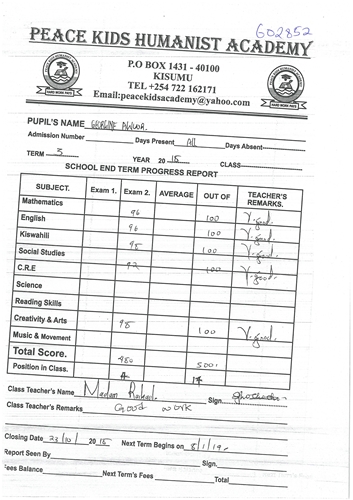 602852
PEACE KIDS HUMANIST ACADEMY
P.O BOX 1431 - 40100
KISUMU
TEL +254 722 162171
Email:peacekidsacademy@yahoo.com
HARD WORK PAYS HARD WORK PAYS
PUPIL'S NAME GEORGINE AWUOR.
Admission Number Days Present All Days Absent
TERM 3 YEAR 2018 CLASS
SCHOOL END TERM PROGRESS REPORT
SUBJECT. Exam 1. Exam 2. AVERAGE OUT OF TEACHER'S REMARKS.
Mathematics 96 100 V.good.
English 96 100 V.good.
Kiswahili 98 100 V.good.
Social Studies 92 100 V.good.
C.R.E
Science
Reading Skills
Creativity & Arts 98 100 V.good.
Music & Movement
Total Score. 480 500
Position in Class.
Class Teacher's Name Madam Sign.
Class Teacher's Remarks Good work
Closing Date 23/10/2018 Next Term Begins on 8/1/19
Report Seen By Sign.
Fees Balance Next Term's Fees Total